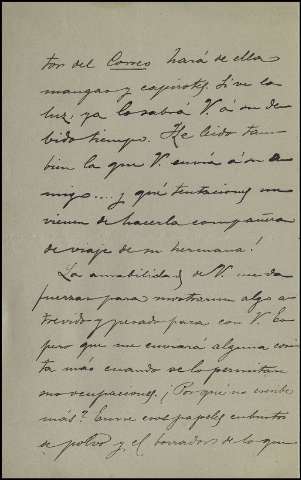 tor del Correo hará de ella
mangas y capirotes. Si ve la
luz, ya lo sabrá V. á su de
bido tiempo. He leido tam
bien la que V. envia á su a
migo.... y qué tentaciones me
vienen de hacerla compañera
de viaje de su hermana!
La amabilidad de V. me da
fuerzas para mostrarme algo a
trevido y pesado para con V. Es
pero que me enviará alguna cosi
ta más cuando se lo permitan
sus ocupaciones. ¿Por qué no escribe
más? Envie esos papeles cubiertos
de polvo y el borrador de lo que